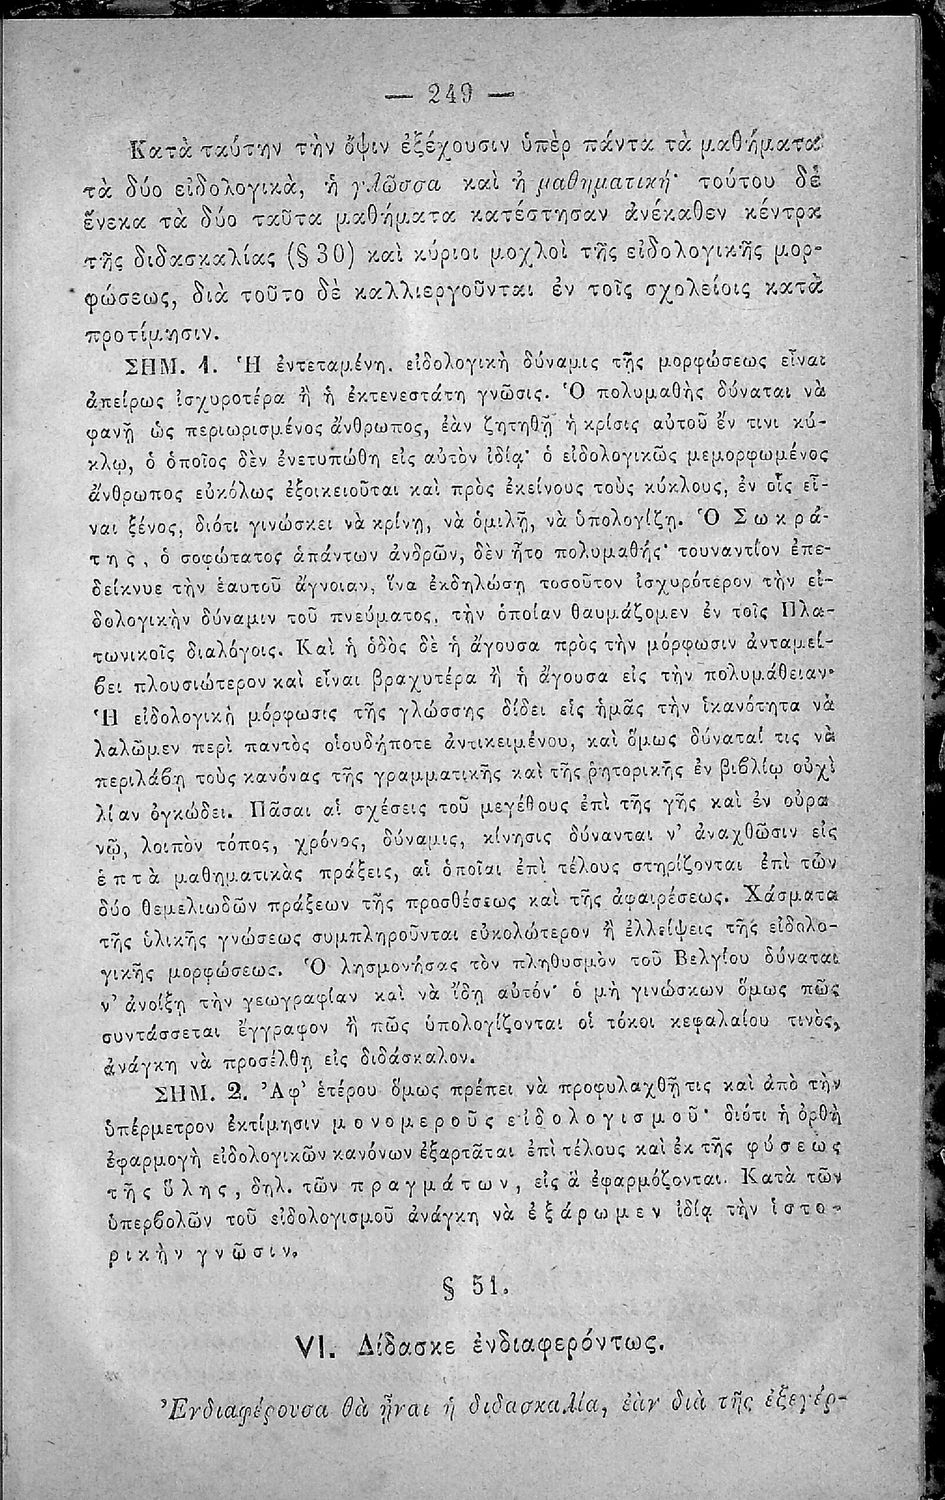 — 249 —
Κατὰ ταύτην τὴν ὄψιν ἐξέχουσιν ὑπὲρ πάντα τὰ μαθήματα
τὰ δύο εἰδολογικὰ, ἡ γλῶσσα καὶ ἡ μαθηματική· τούτου δὲ
ἕνεκα τὰ δύο ταῦτα μαθήματα κατέστησαν ἀνέκαθεν κέντρα
τῆς διδασκαλίας (§ 30) καὶ κύριοι μοχλοὶ τῆς εἰδολογικῆς μορ-
φώσεως, διὰ τοῦτο δὲ καλλιεργοῦνται ἐν τοῖς σχολείοις κατὰ
προτίμησιν.
ΣΗΜ. 1. Ἡ ἐντεταμένη. εἰδολογικὴ δύναμις τῆς μορφώσεως εἶναι
ἀπείρως ἰσχυροτέρα ἢ ἡ ἐκτενεστάτη γνῶσις. Ὁ πολυμαθὴς δύναται νὰ
φανῇ ὡς περιωρισμένος ἄνθρωπος, ἐὰν ζητηθῇ ἡ κρίσις αὐτοῦ ἔν τινι κύ-
κλῳ, ὁ ὁποῖος δὲν ἐνετυπώθη εἰς αὐτὸν ἰδίᾳ· ὁ εἰδολογικῶς μεμορφωμένος
ἄνθρωπος εὐκόλως ἐξοικειοῦται καὶ πρὸς ἐκείνους τοὺς κύκλους, ἐν οἷς εἶ-
ναι ξένος, διότι γινώσκει νὰ κρίνῃ, νὰ ὁμιλῇ, νὰ ὑπολογίζῃ. Ὁ Σωκρά-
της, ὁ σοφώτατος ἁπάντων ἀνδρῶν, δὲν ἦτο πολυμαθής· τουναντίον ἐπε-
δείκνυε τὴν ἑαυτοῦ ἄγνοιαν, ἵνα ἐκδηλώσῃ τοσοῦτον ἰσχυρότερον τὴν εἰ-
δολογικὴν δύναμιν τοῦ πνεύματος, τὴν ὁποίαν θαυμάζομεν ἐν τοῖς Πλα-
τωνικοῖς διαλόγοις. Καὶ ἡ ὁδὸς δὲ ἡ ἄγουσα πρὸς τὴν μόρφωσιν ἀνταμεί-
βει πλουσιώτερον καὶ εἶναι βραχυτέρα ἢ ἡ ἄγουσα εἰς τὴν πολυμάθειαν·
Ἡ εἰδολογικὴ μόρφωσις τῆς γλώσσης δίδει εἰς ἡμᾶς τὴν ἱκανότητα νὰ
λαλῶμεν περὶ παντὸς οἱουδήποτε ἀντικειμένου, καὶ ὅμως δύναταί τις νὰ
περιλάβῃ τοὺς κανόνας τῆς γραμματικῆς καὶ τῆς ῥητορικῆς ἐν βιβλίῳ οὐχὶ
λίαν ὀγκώδει. Πᾶσαι αἱ σχέσεις τοῦ μεγέθους ἐπὶ τῆς γῆς καὶ ἐν οὐρα
νῷ, λοιπὸν τόπος, χρόνος, δύναμις, κίνησις δύνανται ν' ἀναχθῶσιν εἰς
ἑπτὰ μαθηματικὰς πράξεις, αἱ ὁποῖαι ἐπὶ τέλους στηρίζονται ἐπὶ τῶν
δύο θεμελιωδῶν πράξεων τῆς προσθέσεως καὶ τῆς ἀφαιρέσεως. Χάσματα
τῆς ὑλικῆς γνώσεως συμπληροῦνται εὐκολώτερον ἢ ἐλλείψεις τῆς εἰδολο-
γικῆς μορφώσεως. Ὁ λησμονήσας τὸν πληθυσμὸν τοῦ Βελγίου δύναται
ν' ἀνοίξῃ τὴν γεωγραφίαν καὶ νὰ ἴδῃ αὐτόν· ὁ μὴ γινώσκων ὅμως πῶς
συντάσσεται ἔγγραφον ἢ πῶς ὑπολογίζονται οἱ τόκοι κεφαλαίου τινὸς,
ἀνάγκη νὰ προσέλθῃ εἰς διδάσκαλον.
ΣΗΜ. 2. Ἀφ' ἑτέρου ὅμως πρέπει νὰ προφυλαχθῇ τις καὶ ἀπὸ τὴν
ὑπέρμετρον ἐκτίμησιν μονομεροῦς εἰδολογισμοῦ· διότι ἡ ὀρθὴ
ἐφαρμογὴ εἰδολογικῶν κανόνων ἐξαρτᾶται ἐπὶ τέλους καὶ ἐκ τῆς φύσεως
τῆς ὕλης, δηλ. τῶν πραγμάτων, εἰς ἃ ἐφαρμόζονται. Κατὰ τῶν
ὑπερβολῶν τοῦ εἰδολογισμοῦ ἀνάγκη νὰ ἐξάρωμεν ἰδίᾳ τὴν ἱστο-
ρικὴν γνῶσιν.
§ 51.
VI. Δίδασκε ἐνδιαφερόντως.
Ἐνδιαφέρουσα θὰ ᾖναι ἡ διδασκαλία, ἐὰν διὰ τῆς ἐξεγέρ-